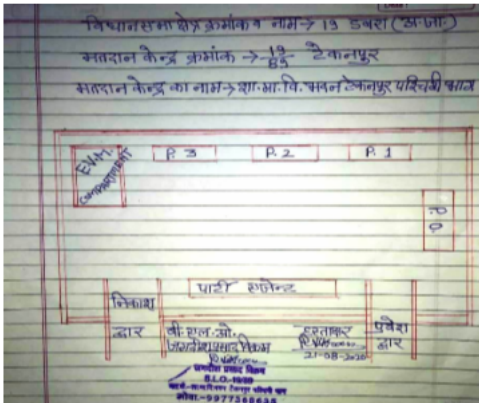 विधानसभा क्षेत्र क्रमांक व नाम → 19 डबरा (अ.जा.)
मतदान केन्द्र क्रमांक → 19/89 टेकनपुर
मतदान केन्द्र का नाम → शा.मा.वि. भवन टेकनपुर पश्चिमी भाग
E.V.M. COMPARTMENT
P. 3
P. 2
P. 1
P.O
पार्टी एजेन्ट
निकाश
द्वार
बी.एल.ओ.
जगदीश प्रसाद
हस्ताक्षर
21-08-2020
प्रवेश
द्वार
जगदीश प्रसाद
B.L.O.